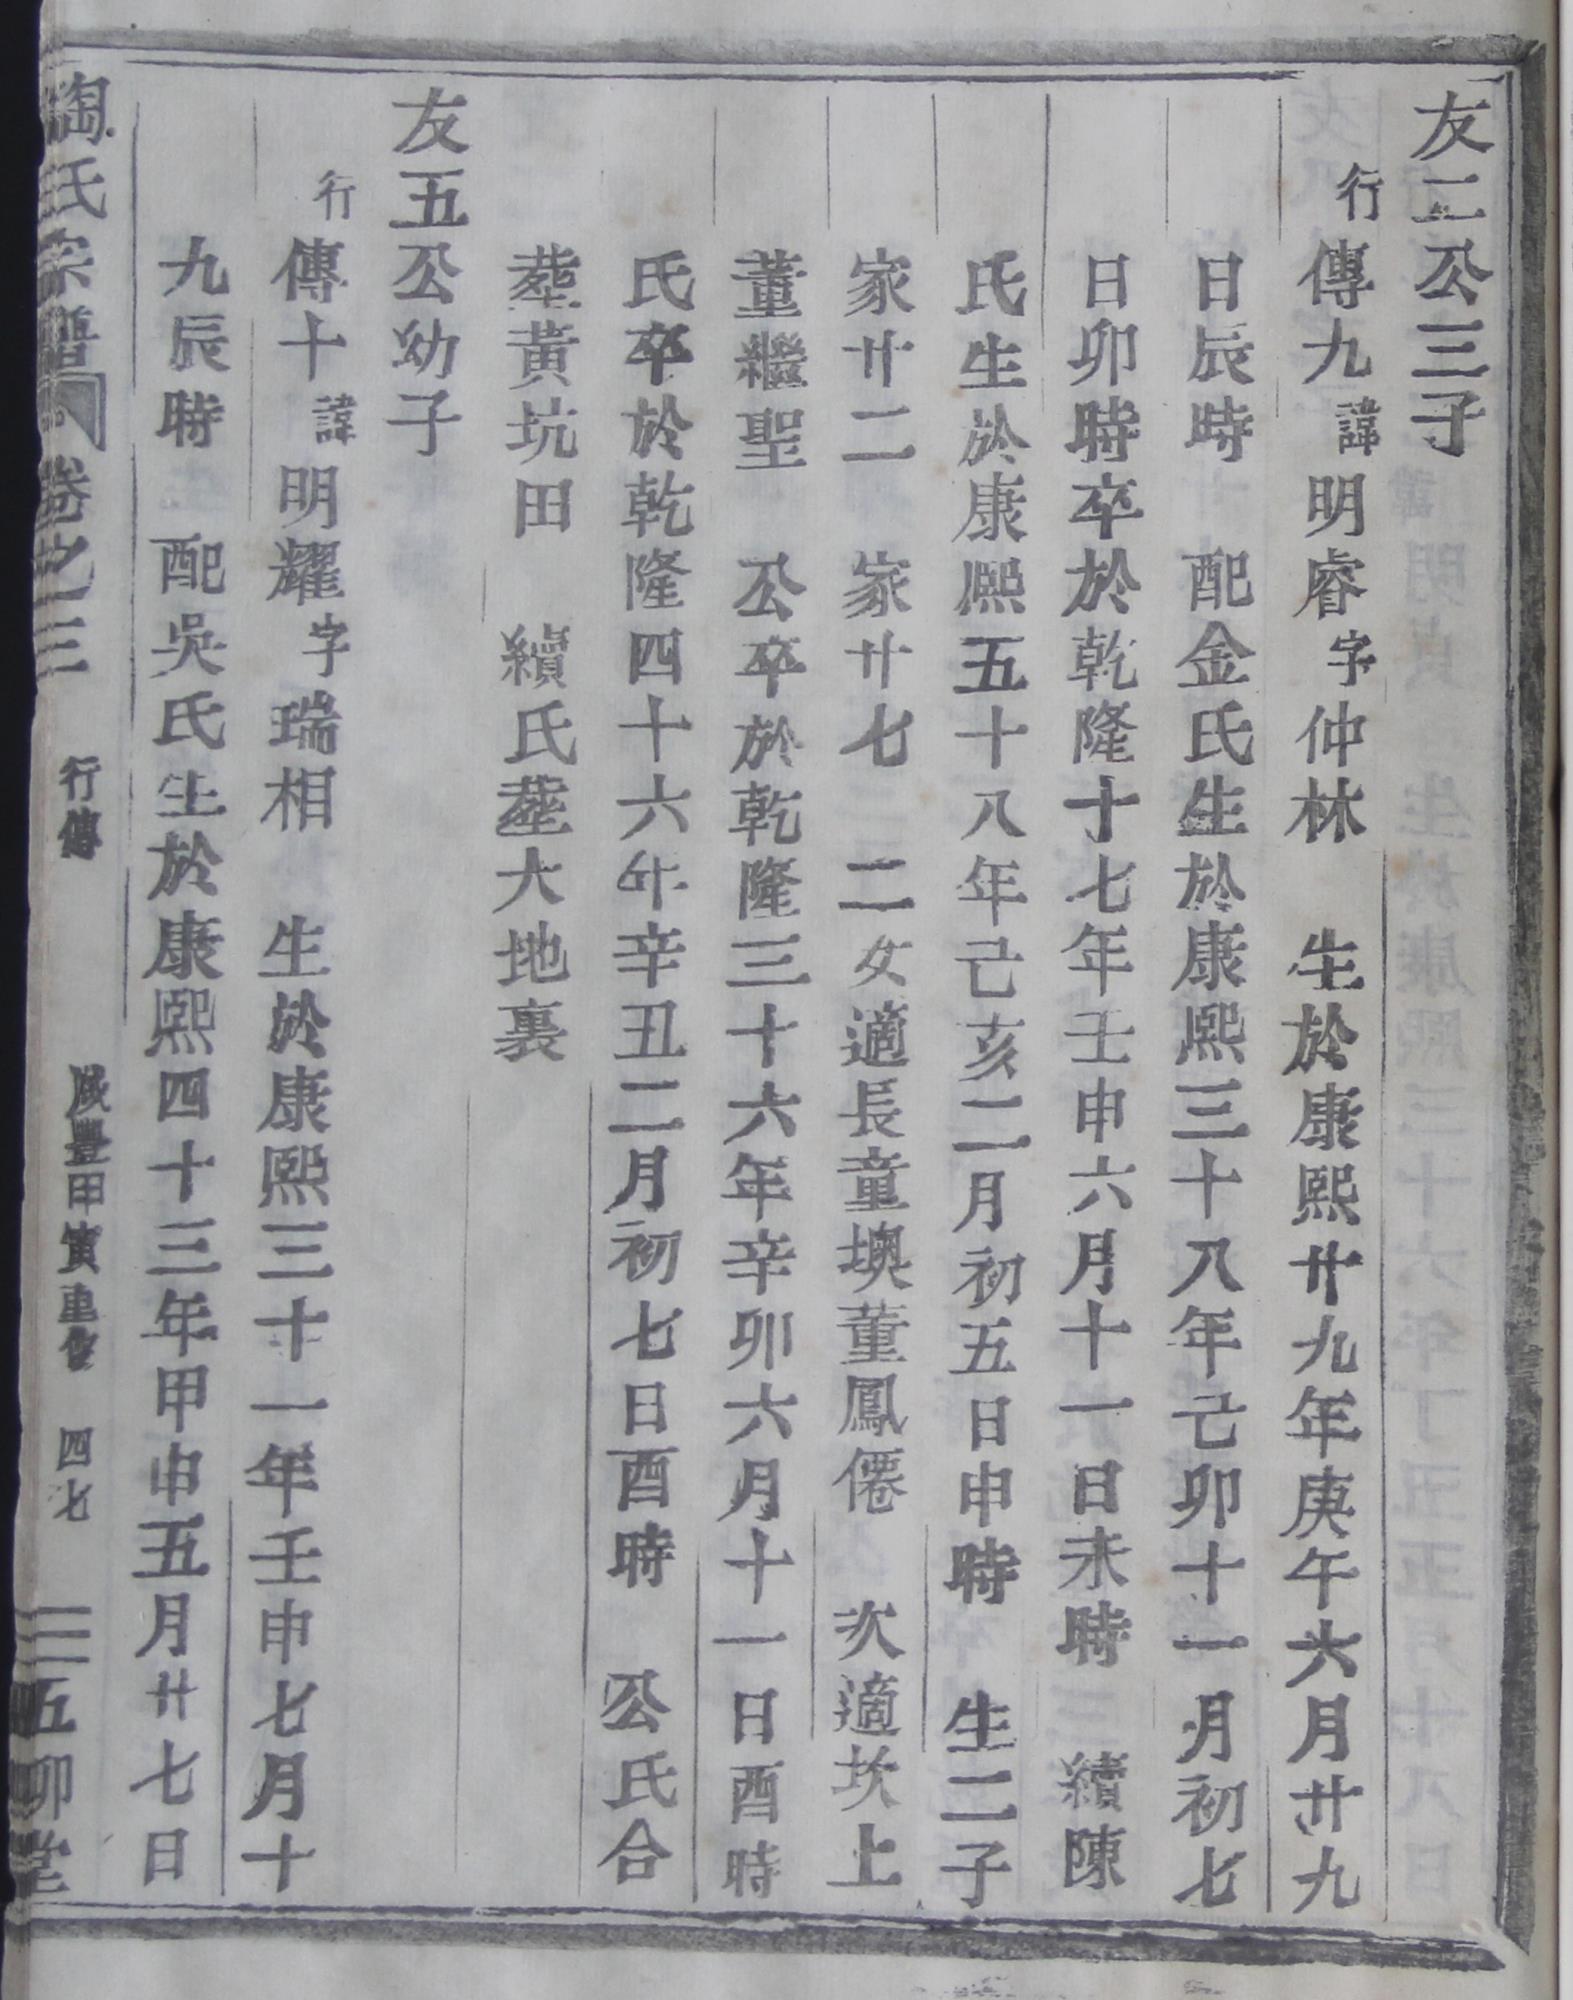 友二公三子
行傳九諱明睿字仲林 生於康熙廿九年庚午六月廿九
日辰時 配金氏生於康熙三十八年己卯十一月初七
日卯時卒於乾隆十七年壬申六月十一日未時 續陳
氏生於康熙五十八年己亥二月初五日申時 生二子
家廿二 家廿七 二女適長童墺董鳳僊 次適坎上
董繼聖 公卒於乾隆三十六年辛卯六月十一日酉時
氏卒於乾隆四十六年辛丑二月初七日酉時 公氏合
塟黃坑田 續氏塟大地裏
友五公幼子
行傳十諱明耀字瑞相 生於康熙三十一年壬申七月十
九辰時 配吳氏生於康熙四十三年甲申五月廿七日
陶氏宗譜 卷之三 行傳 咸豐甲寅重修 四七 五柳堂